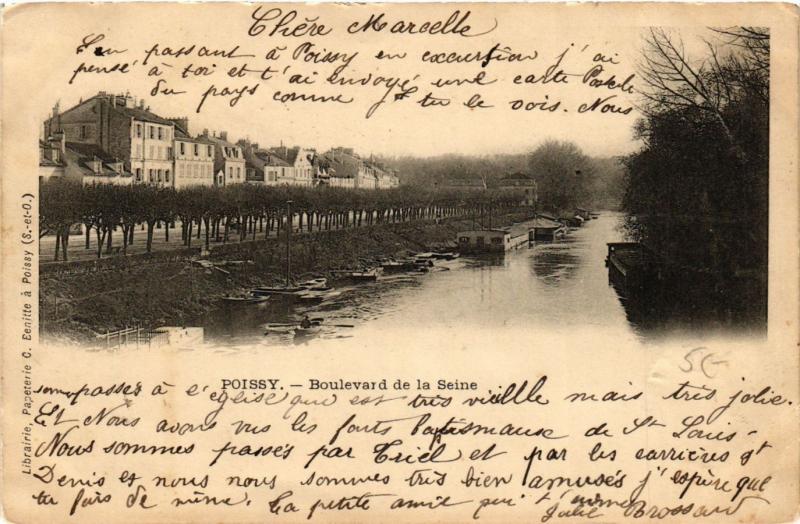 Chère Marcelle
En passant à Poissy en excurstion j'ai
pensé à toi et t'ai envoyé une carte Postele
du pays comme tu le vois. Nous
POISSY. — Boulevard de la Seine
5€
sommes passés à l'église que est très vieille mais très jolie.
Et Nous avons vus les fonts Batismause de St Louis
Nous sommes passés par Triel et par les carrières St
Denis et nous nous sommes très bien amusés j'espère que
tu fais de même. La petite amie qui t'aime
Julie Brossard
Librairie, Papeterie C. Eenitte à Poissy (S.-et-O.)